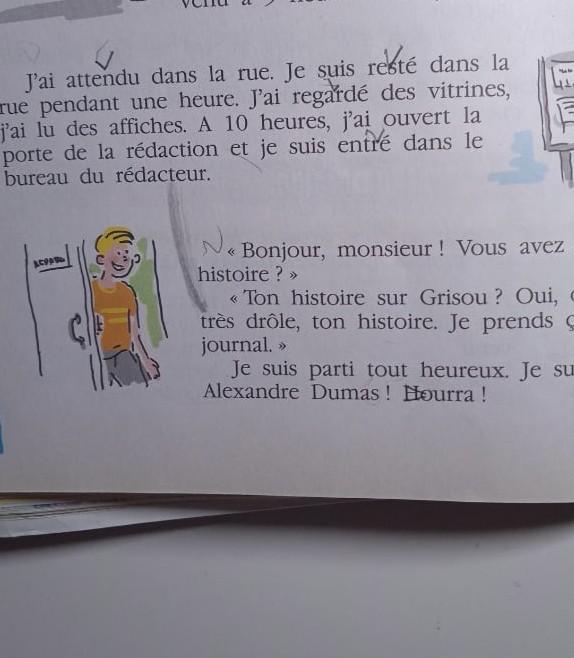 J'ai attendu dans la rue. Je suis resté dans la
rue pendant une heure. J'ai regardé des vitrines,
j'ai lu des affiches. A 10 heures, j'ai ouvert la
porte de la rédaction et je suis entré dans le
bureau du rédacteur.
« Bonjour, monsieur ! Vous avez
histoire ? »
« Ton histoire sur Grisou ? Oui,
très drôle, ton histoire. Je prends
journal. »
Je suis parti tout heureux. Je
Alexandre Dumas ! Hourra !